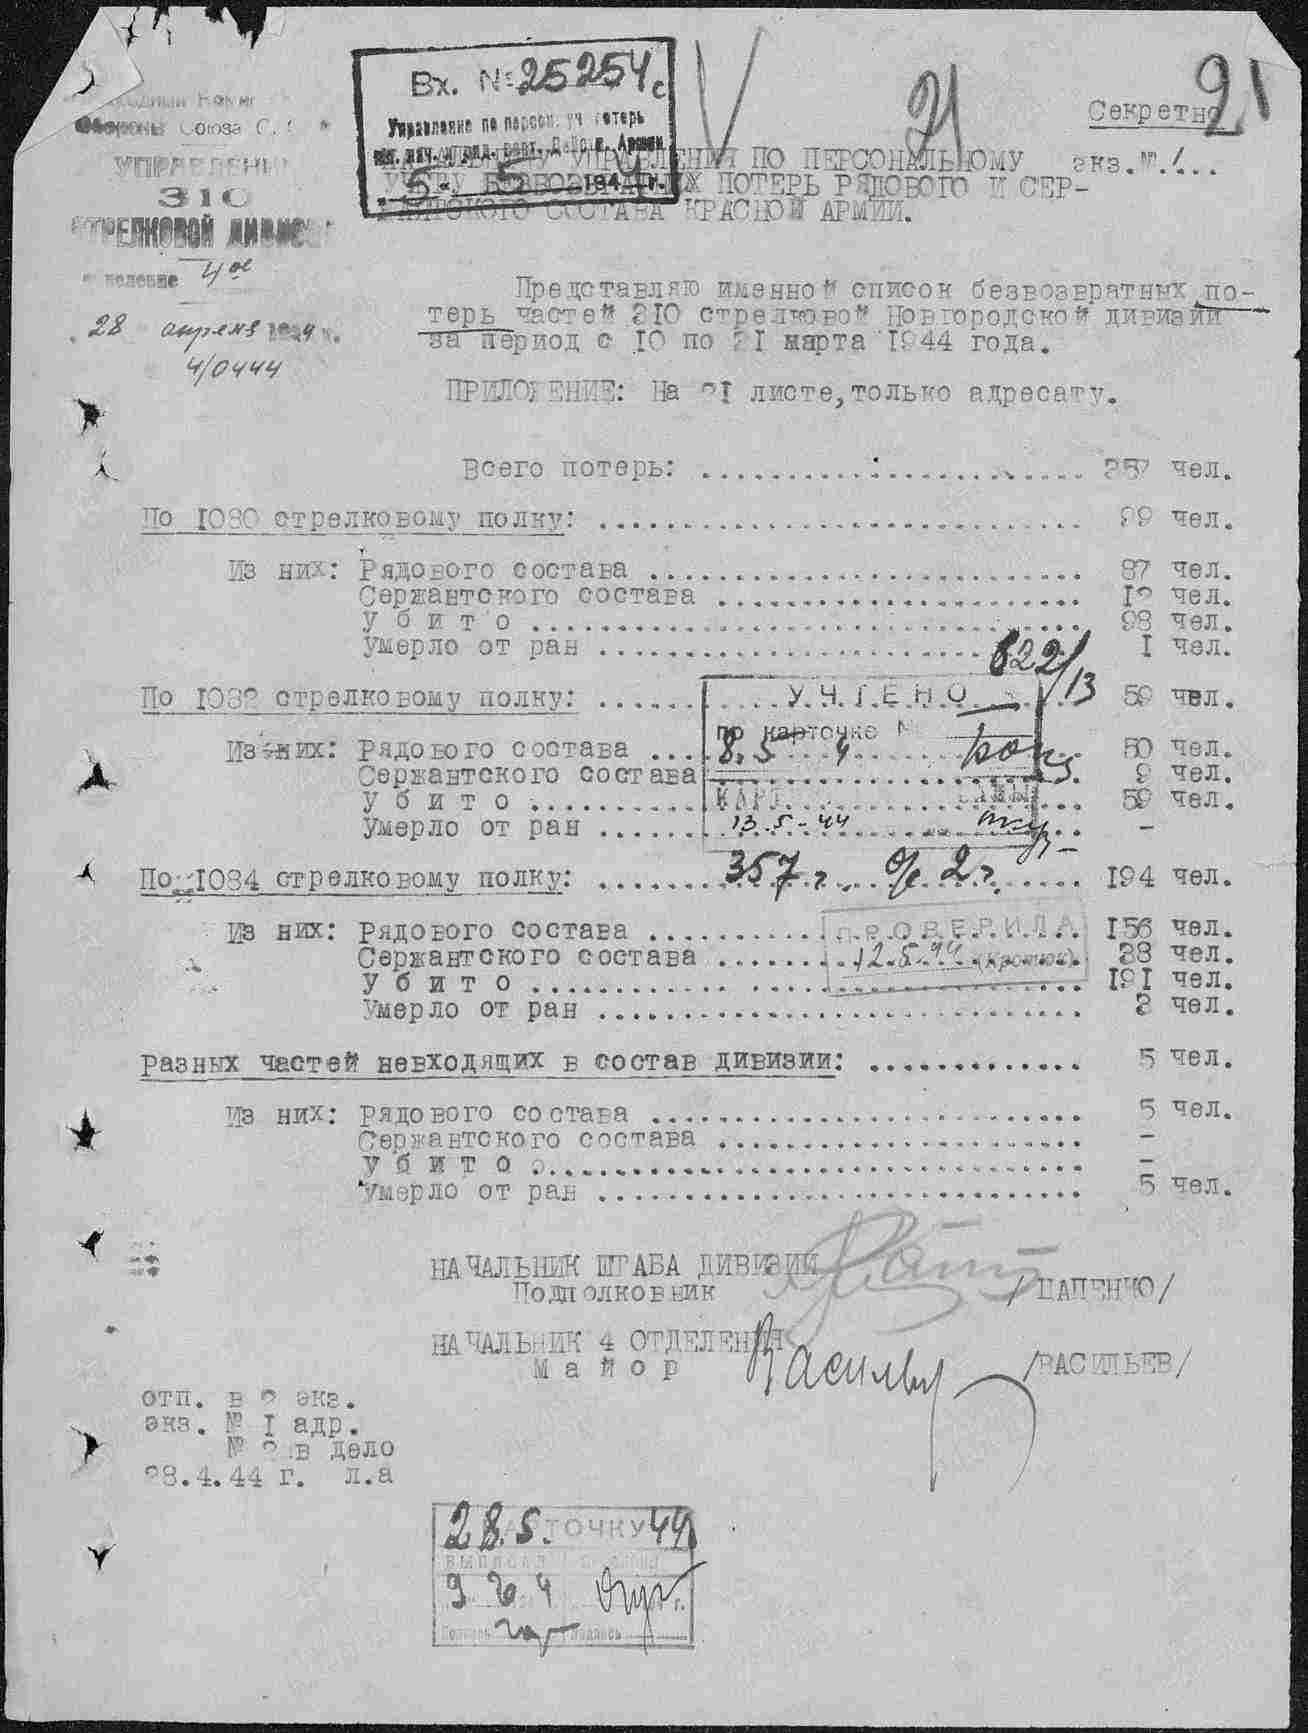 Секретно
21
экз.№ 1...
Вх. № 25254с
Управление по персон. уч. потерь
5. 5. 194 г.
УПРАВЛЕНИЯ ПО ПЕРСОНАЛЬНОМУ
ПОТЕРЬ РЯДОВОГО И СЕР-
СОСТАВА КРАСНОЙ АРМИИ.
Обороны Союза С.
УПРАВЛЕНИЕ
310
СТРЕЛКОВОЙ ДИВИЗИИ
отделение 4ое
28 апреля 1944 г.
4/0444
Представляю именной список безвозвратных по-
терь частей 310 стрелковой Новгородской дивизии
за период с 10 по 21 марта 1944 года.
ПРИЛОЖЕНИЕ: На 21 листе, только адресату.
Всего потерь: 357 чел.
По 1080 стрелковому полку: 99 чел.
Из них: Рядового состава 87 чел.
Сержантского состава 12 чел.
У б и т о 98 чел.
Умерло от ран I чел.
622/13
По 1082 стрелковому полку: 59 чел.
УЧТЕНО
по карточке №
Из них: Рядового состава 50 чел.
8.5 4
Сержантского состава 9 чел.
У б и т о 59 чел.
Умерло от ран -
13.5-44
По 1084 стрелковому полку: 194 чел.
357 г. 2 г.
Из них: Рядового состава 156 чел.
ПРОВЕРИЛА
Сержантского состава 38 чел.
12.5.44
У б и т о 191 чел.
Умерло от ран 3 чел.
Разных частей невходящих в состав дивизии: 5 чел.
Из них: Рядового состава 5 чел.
Сержантского состава -
У б и т о -
Умерло от ран 5 чел.
НАЧАЛЬНИК ШТАБА ДИВИЗИИ
Подполковник /ЦАПЕНКО/
НАЧАЛЬНИК 4 ОТДЕЛЕНИЯ
М а й о р Васильев /ВАСИЛЬЕВ/
отп. в 2 экз.
экз. № I адр.
№ 2 в дело
28.4.44 г. л.а
КАРТОЧКУ
28.5. 44
подпись